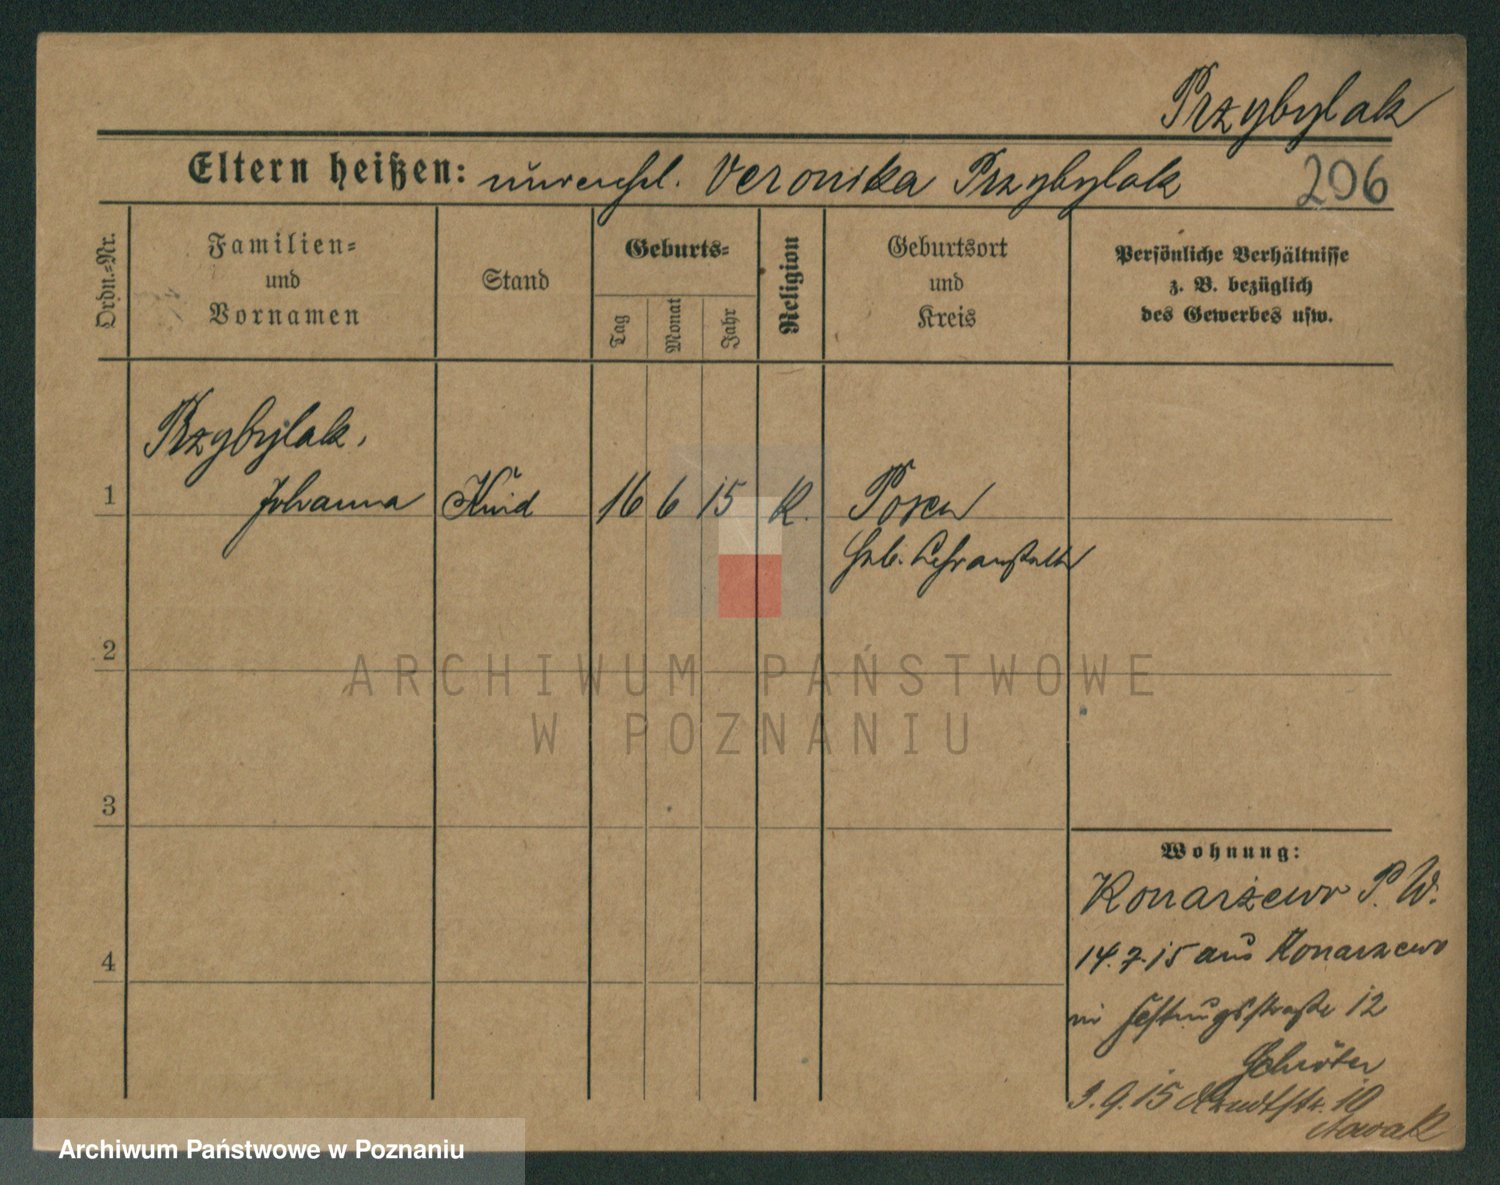 Przybylak
Eltern heißen: unverehel. Veronika Przybylak 206
Ordn.=Nr.
Familien=
und
Vornamen
Stand
Geburts=
Tag
Monat
Jahr
Religion
Geburtsort
und
Kreis
Persönliche Verhältnisse
z. B. bezüglich
des Gewerbes usw.
Przybylak,
1 Johanna Kind 16 6 15 K. Posen
Heb. Lehranstalt
2
3
4
Wohnung:
Konarzewo P. W.
14.7.15 aus Konarzewo
in Festungsstraße 12
Schröter
3.9.15 Arndtstr. 10
Nowak
ARCHIWUM PAŃSTWOWE
W POZNANIU
Archiwum Państwowe w Poznaniu